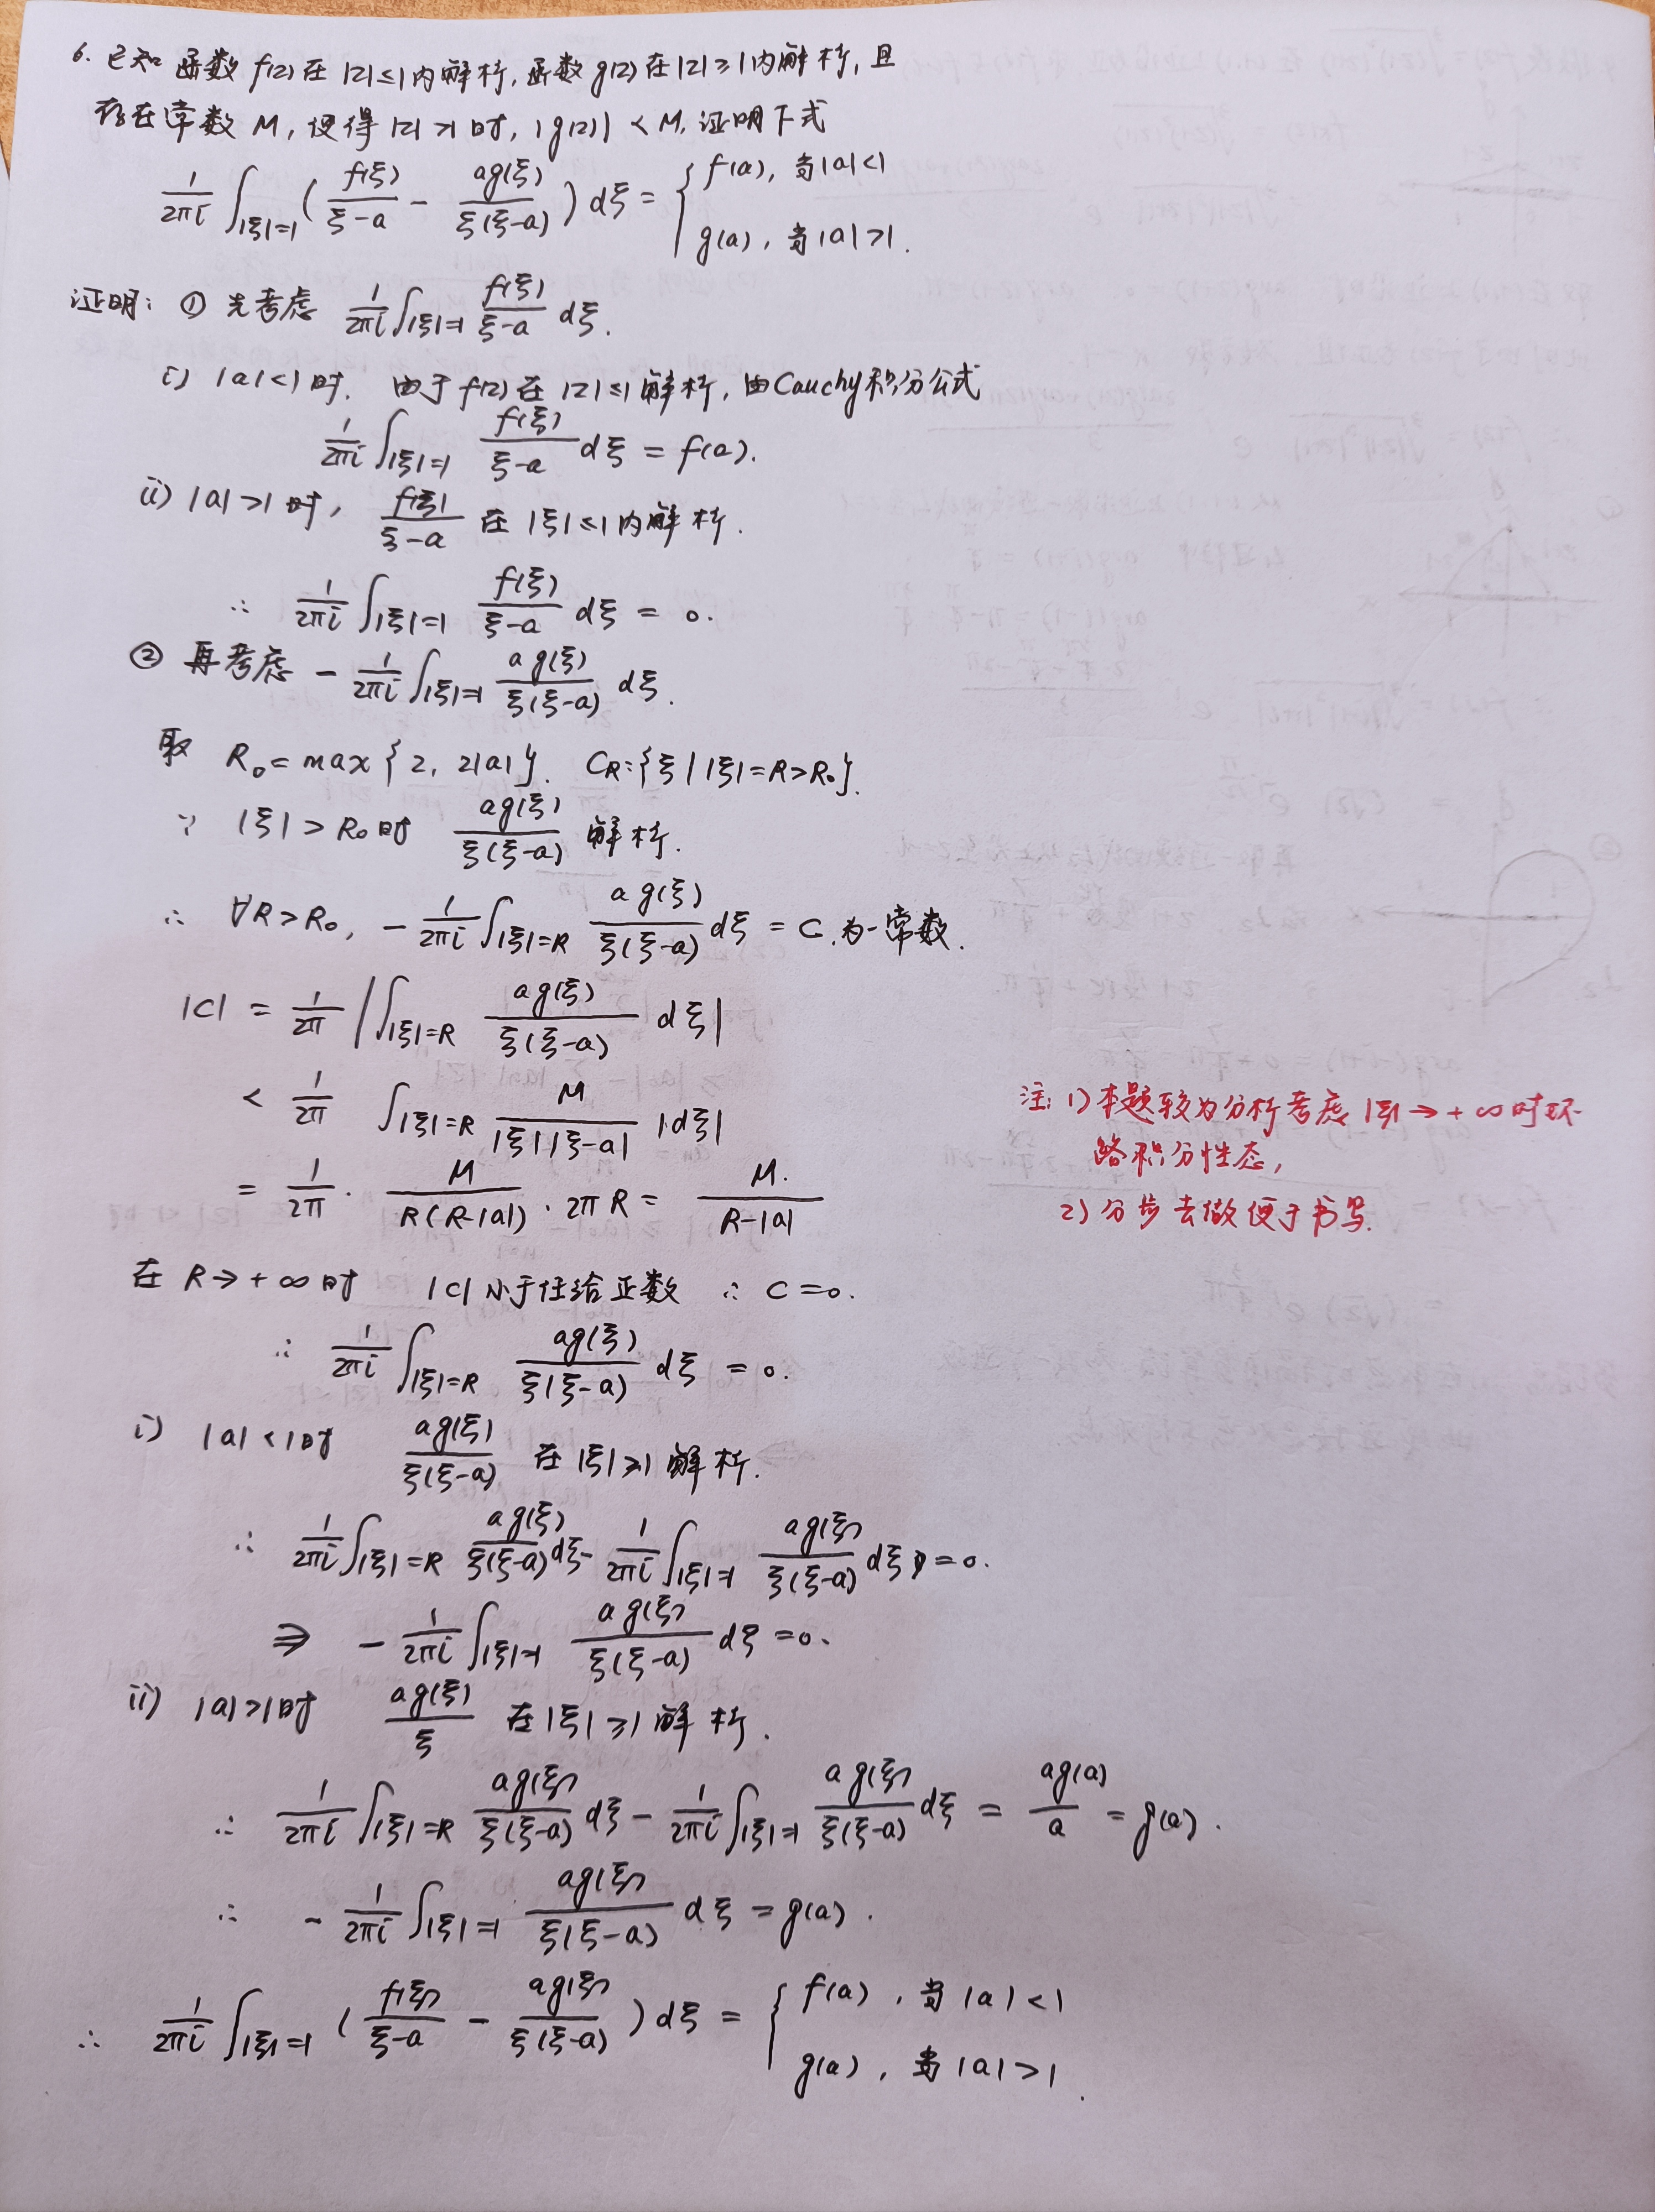 6. 已知 函数 f(z) 在 |z|≤1 内解析, 函数 g(z) 在 |z|≥1 内解析, 且
存在常数 M, 使得 |z|>1 时, |g(z)| < M, 证明下式
\frac{1}{2πi} ∫_{|ξ|=1} ( \frac{f(ξ)}{ξ-a} - \frac{ag(ξ)}{ξ(ξ-a)} ) dξ = { f(a), 当|a|<1
g(a), 当|a|>1.
证明: ① 先考虑 \frac{1}{2πi} ∫_{|ξ|=1} \frac{f(ξ)}{ξ-a} dξ.
i) |a|<1 时, 由于 f(z) 在 |z|≤1 解析, 由Cauchy积分公式
\frac{1}{2πi} ∫_{|ξ|=1} \frac{f(ξ)}{ξ-a} dξ = f(a).
ii) |a|>1 时, \frac{f(ξ)}{ξ-a} 在 |ξ|≤1 内解析.
∴ \frac{1}{2πi} ∫_{|ξ|=1} \frac{f(ξ)}{ξ-a} dξ = 0.
② 再考虑 - \frac{1}{2πi} ∫_{|ξ|=1} \frac{ag(ξ)}{ξ(ξ-a)} dξ.
取 R₀ = max { 2, 2|a| }. C_R: {ξ | |ξ|=R>R₀}.
∵ |ξ| > R₀ 时 \frac{ag(ξ)}{ξ(ξ-a)} 解析.
∴ ∀R>R₀, - \frac{1}{2πi} ∫_{|ξ|=R} \frac{ag(ξ)}{ξ(ξ-a)} dξ = C. 为一常数.
|C| = \frac{1}{2π} | ∫_{|ξ|=R} \frac{ag(ξ)}{ξ(ξ-a)} dξ |
< \frac{1}{2π} ∫_{|ξ|=R} \frac{M}{|ξ||ξ-a|} |dξ|
= \frac{1}{2π} · \frac{M}{R(R-|a|)} · 2πR = \frac{M.}{R-|a|}
注: 1) 本题较为分析考虑 |ξ|→+∞时环
路积分性态,
2) 分步去做便于书写.
在 R→+∞时 |C| 小于任给正数 ∴ C=0.
∴ \frac{1}{2πi} ∫_{|ξ|=R} \frac{ag(ξ)}{ξ(ξ-a)} dξ = 0.
i) |a|<1时 \frac{ag(ξ)}{ξ(ξ-a)} 在 |ξ|≥1 解析.
∴ \frac{1}{2πi} ∫_{|ξ|=R} \frac{ag(ξ)}{ξ(ξ-a)} dξ - \frac{1}{2πi} ∫_{|ξ|=1} \frac{ag(ξ)}{ξ(ξ-a)} dξ = 0.
⇒ - \frac{1}{2πi} ∫_{|ξ|=1} \frac{ag(ξ)}{ξ(ξ-a)} dξ = 0.
ii) |a|>1时 \frac{ag(ξ)}{ξ} 在 |ξ|≥1 解析.
∴ \frac{1}{2πi} ∫_{|ξ|=R} \frac{ag(ξ)}{ξ(ξ-a)} dξ - \frac{1}{2πi} ∫_{|ξ|=1} \frac{ag(ξ)}{ξ(ξ-a)} dξ = \frac{ag(a)}{a} = g(a).
∴ - \frac{1}{2πi} ∫_{|ξ|=1} \frac{ag(ξ)}{ξ(ξ-a)} dξ = g(a).
∴ \frac{1}{2πi} ∫_{|ξ|=1} ( \frac{f(ξ)}{ξ-a} - \frac{ag(ξ)}{ξ(ξ-a)} ) dξ = { f(a), 当 |a|<1
g(a), 当 |a|>1.